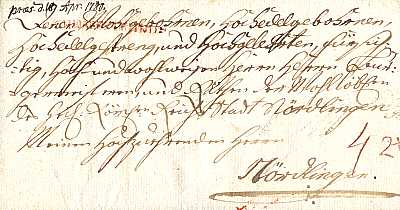 præs. d. 19 Apr: 1780.
Denen Hochgebohrnen, HochEdelgebohrnen,
HochEdelgestreng, und Hochgelehrten, fürsich-
tig, Hoch und wohlweisen Herrn Herrn Bur-
germeistern und Räthen der Wohllöbl.
des Heil. Röm. Reichs Stadt Nördlingen
Meinen Hochzuehrenden Herrn
Nördlingen.